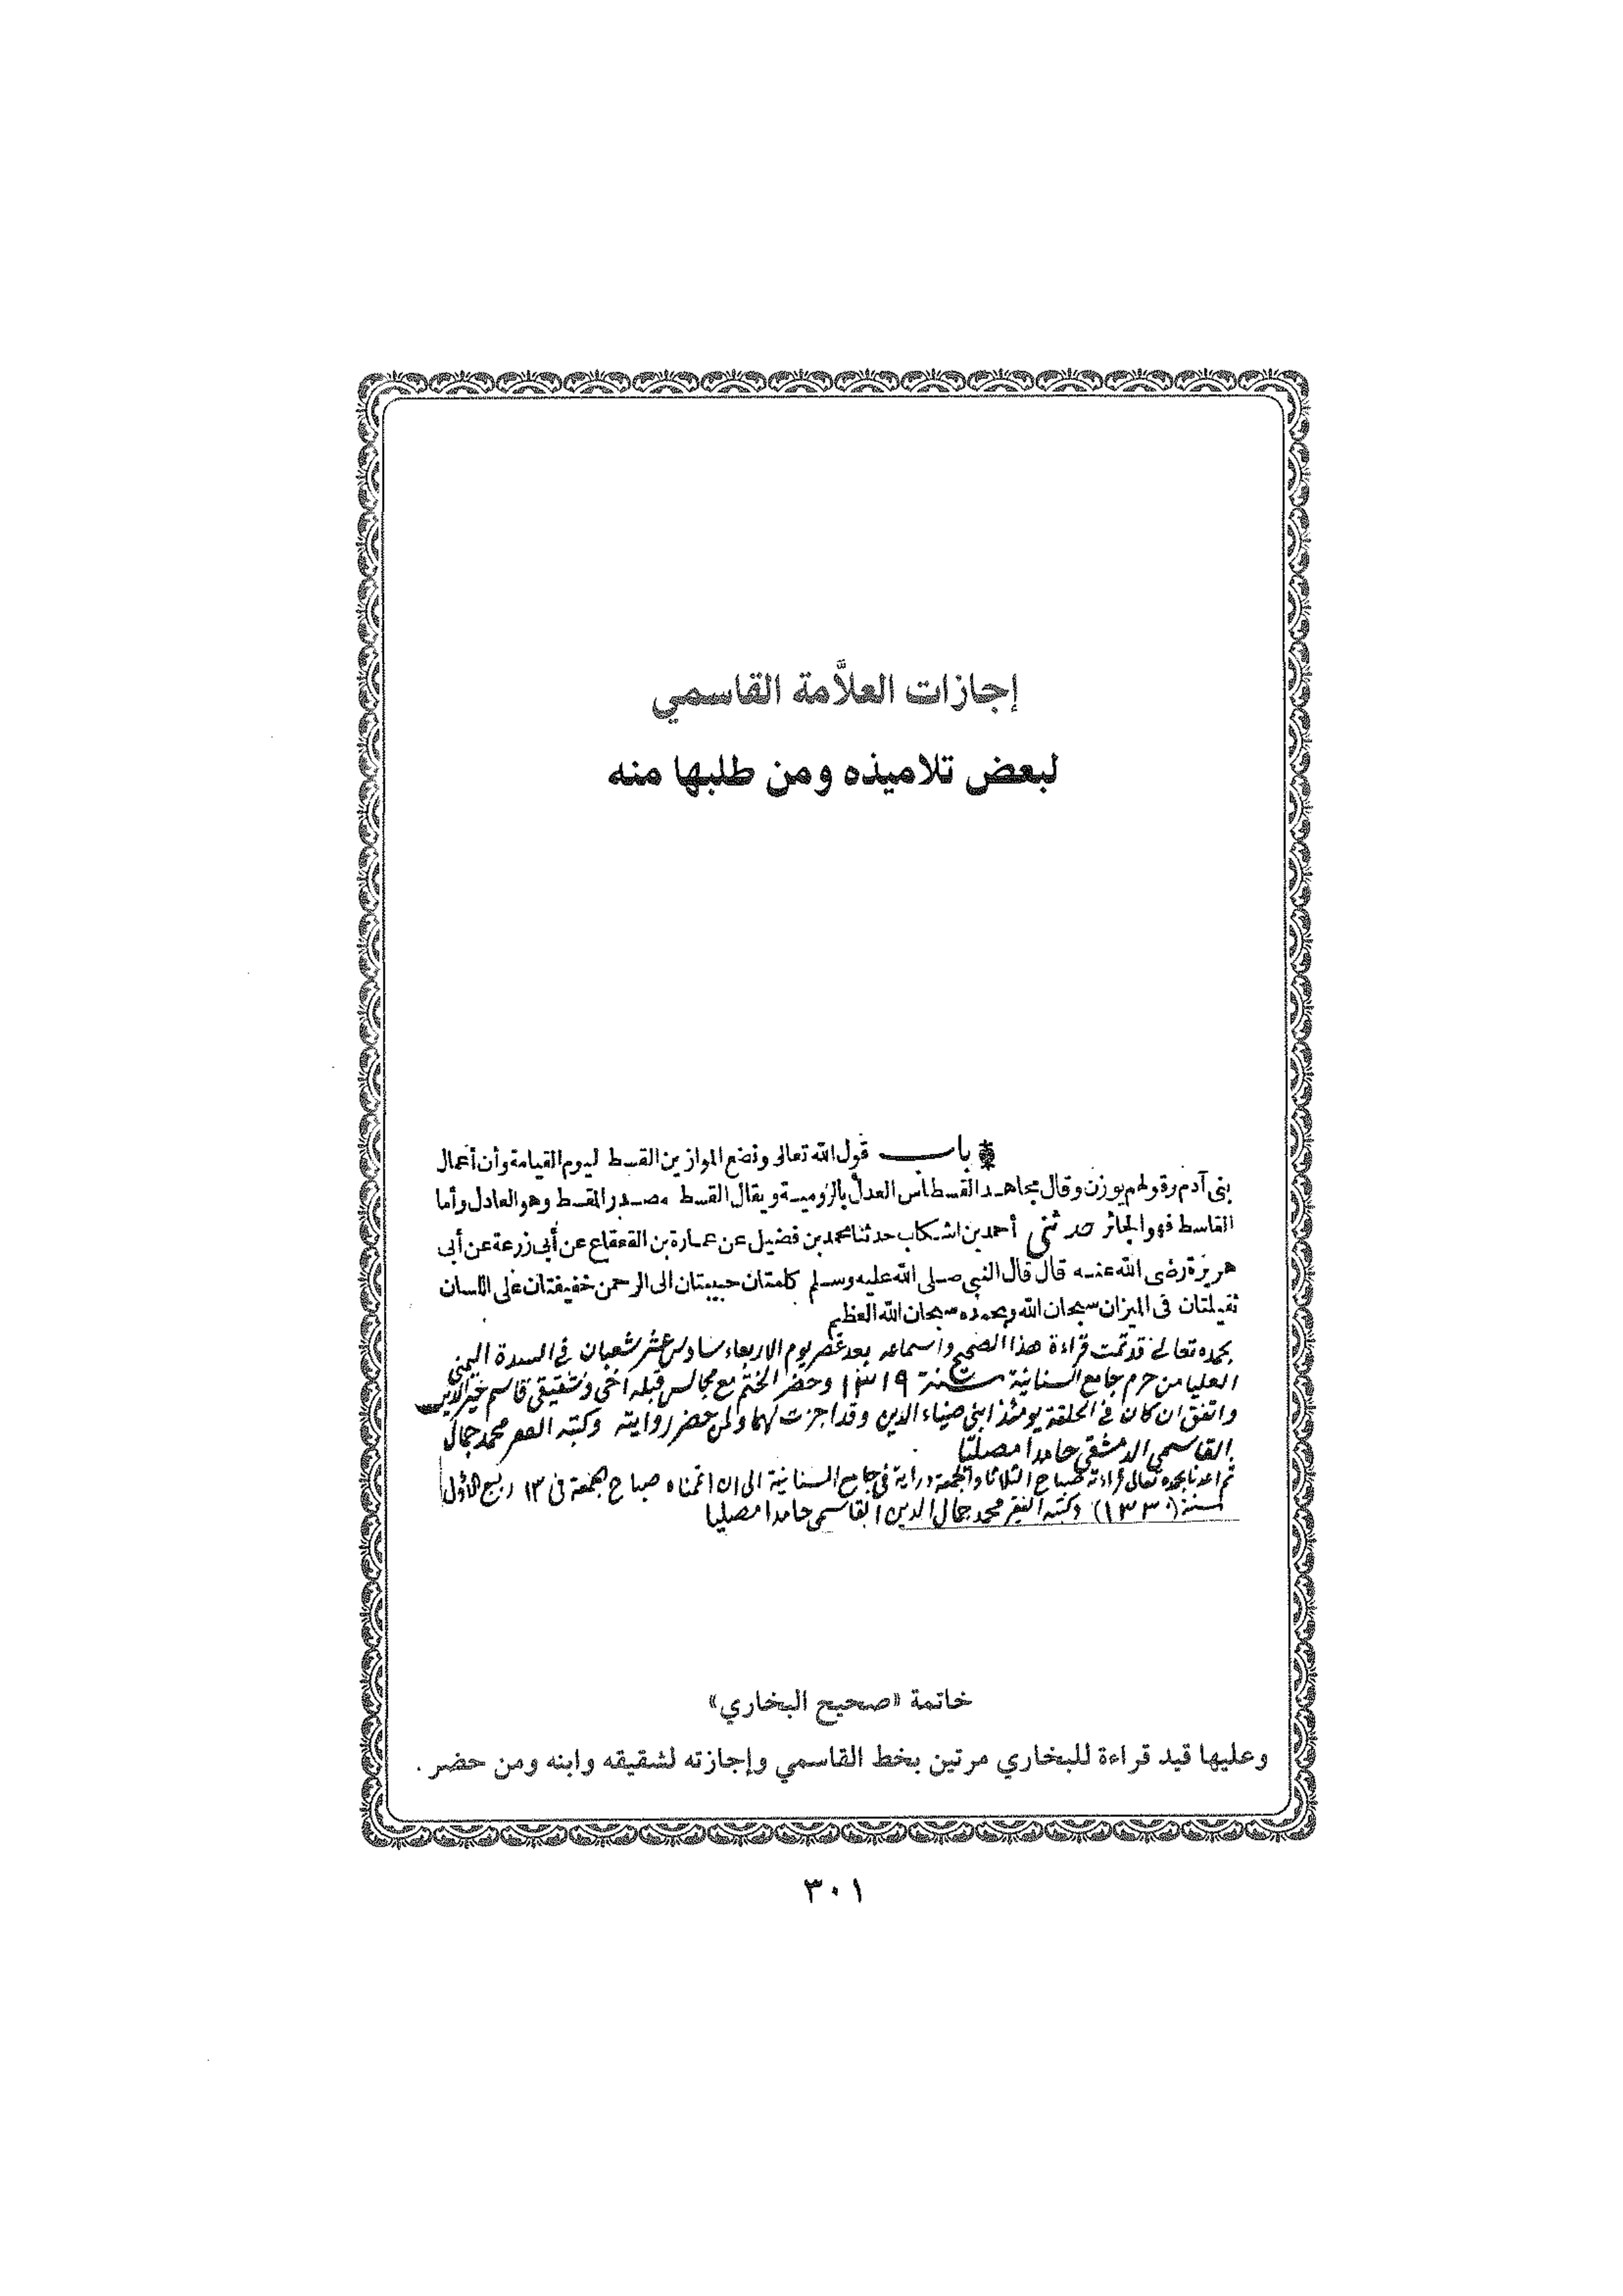 إجازات العلاَّمة القاسمي
لبعض تلاميذه ومن طلبها منه
باب قول الله تعالى ونضع الموازين القسط ليوم القيامة وأن أعمال
بنى آدم وقولهم يوزن وقال مجاهد القسطاس العدل بالرومية ويقال القسط مصدر المقسط وهو العادل وأما
القاسط فهو الجائر حدثني أحمد بن اشكاب حدثنا محمد بن فضيل عن عمارة بن القعقاع عن أبى زرعة عن أبى
هريرة رضى الله عنه قال قال النبي صلى الله عليه وسلم كلمتان حبيبتان الى الرحمن خفيفتان على اللسان
ثقيلتان فى الميزان سبحان الله وبحمده سبحان الله العظيم
بحمده تعالى قد تمت قراءة هذا الصحيح واسماعه بعد عصر يوم الاربعاء سادس عشر شعبان في السدة اليمنى
العليا من حرم جامع السنانية سنة ١٣١٩ وحضر الختم مع مجالس قبله أخى وشقيقى قاسم خير الدين
واتفق ان كان في الحلقة يومئذ ابني ضياء الدين وقد اجزت لهما ولمن حضر روايته وكتبه محمد جمال
القاسمي الدمشقي حامدا مصليا
ثم اعدنا بحمده تعالى قراءته صباح الثلاثا والجمعة دراية في جامع السنانية الى ان اتممناه صباح الجمعة فى ١٣ ربيع الأول
لسنة (١٣٣٠) وكتبه الفقير محمد جمال الدين القاسمى حامدا مصليا
خاتمة «صحيح البخاري»
وعليها قيد قراءة للبخاري مرتين بخط القاسمي وإجازته لشقيقه وابنه ومن حضر .
٣٠١